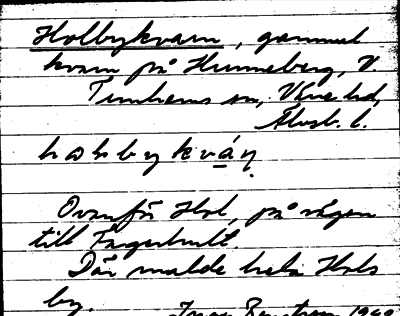 Holbykvarn, gammal
kvarn på Hunneberg, V.
Tunhems sn, Väne hd,
Älvsb. l.
Ovanför Hol, på vägen
till Fagerhult.
Där malde hela Hols
by.